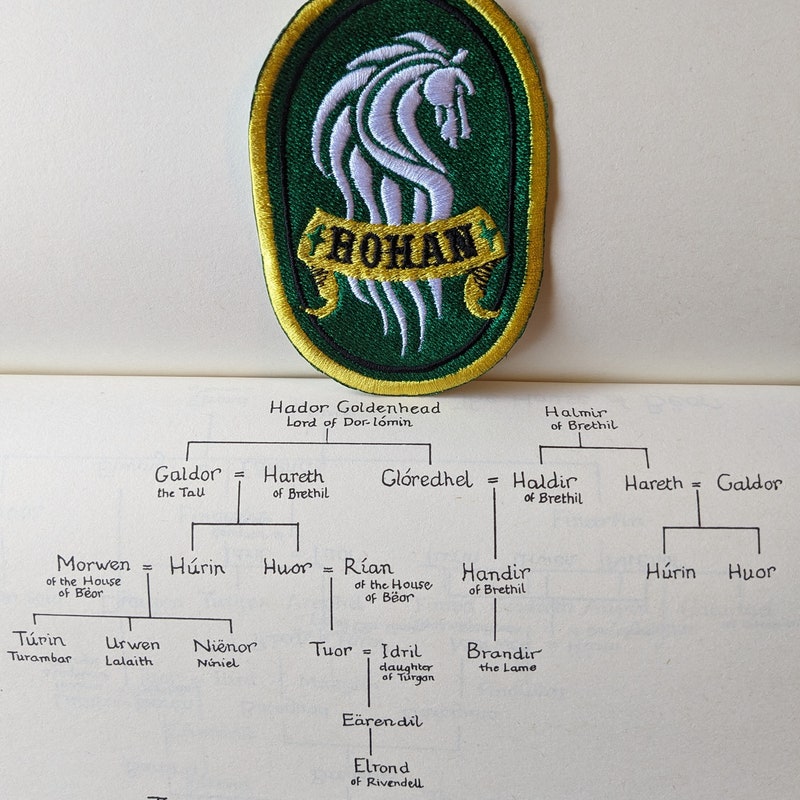 ROHAN
Hador Goldenhead
Lord of Dor-lómin
Halmir
of Brethil
Galdor = Hareth
the Tall
of Brethil
Glóredhel = Haldir
of Brethil
Hareth = Galdor
Morwen = Húrin
of the House
of Bëor
Huor = Rían
of the House
of Bëor
Handir
of Brethil
Húrin
Huor
Túrin
Turambar
Urwen
Lalaith
Niënor
Níniel
Tuor = Idril
daughter
of Turgon
Brandir
the Lame
Eärendil
Elrond
of Rivendell